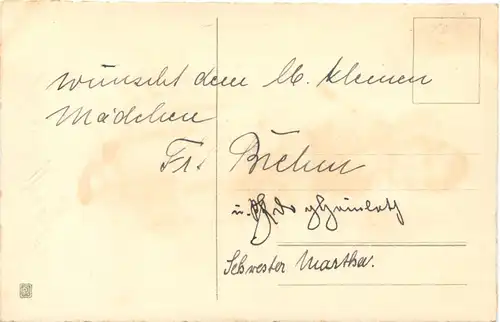 wünscht dem lb. kleinen
Mädchen
Fr. Brehm
u.
Schwester Martha.